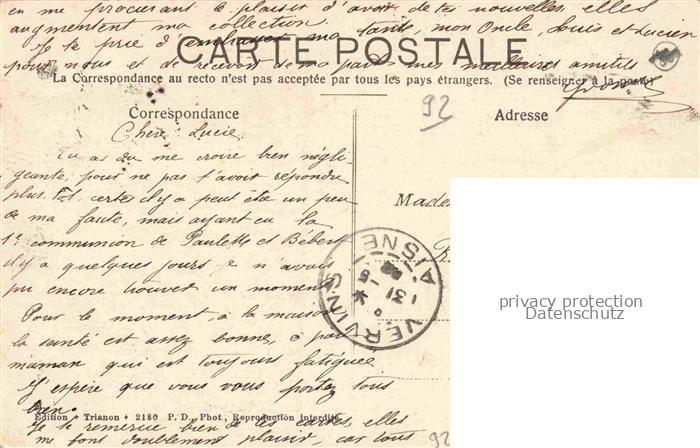 en me procurant le plaisir d'avoir de tes nouvelles, elles
augmentent ma collection.
Je te prie d'embrasser ma tante, mon Oncle, Louis et Lucien
pour nous et de recevoir de ma part mes meilleures amitiés
CARTE POSTALE
La Correspondance au recto n'est pas acceptée par tous les pays étrangers. (Se renseigner à la poste)
Yvonne
92
Correspondance
Adresse
Chère Lucie
Tu as du me croire bien négli-
geante, pour ne pas t'avoir répondu
plus tôt, certes il y a peut être un peu
de ma faute, mais ayant eu la
1e communion de Paulette et Bébert
il y a quelques jours je n'avais
pu encore trouver un moment
Pour le moment, à la maison
la santé est assez bonne, à part
maman qui est toujours fatiguée
J'espère que vous vous portez tous
bien.
Je te remercie bien de tes cartes, elles
me font doublement plaisir car tous
Edition Trianon 2180 P. D., Phot., Reproduction interdite
Mades
VERVINS
AISNE
31 - 5
privacy protection
Datenschutz
92